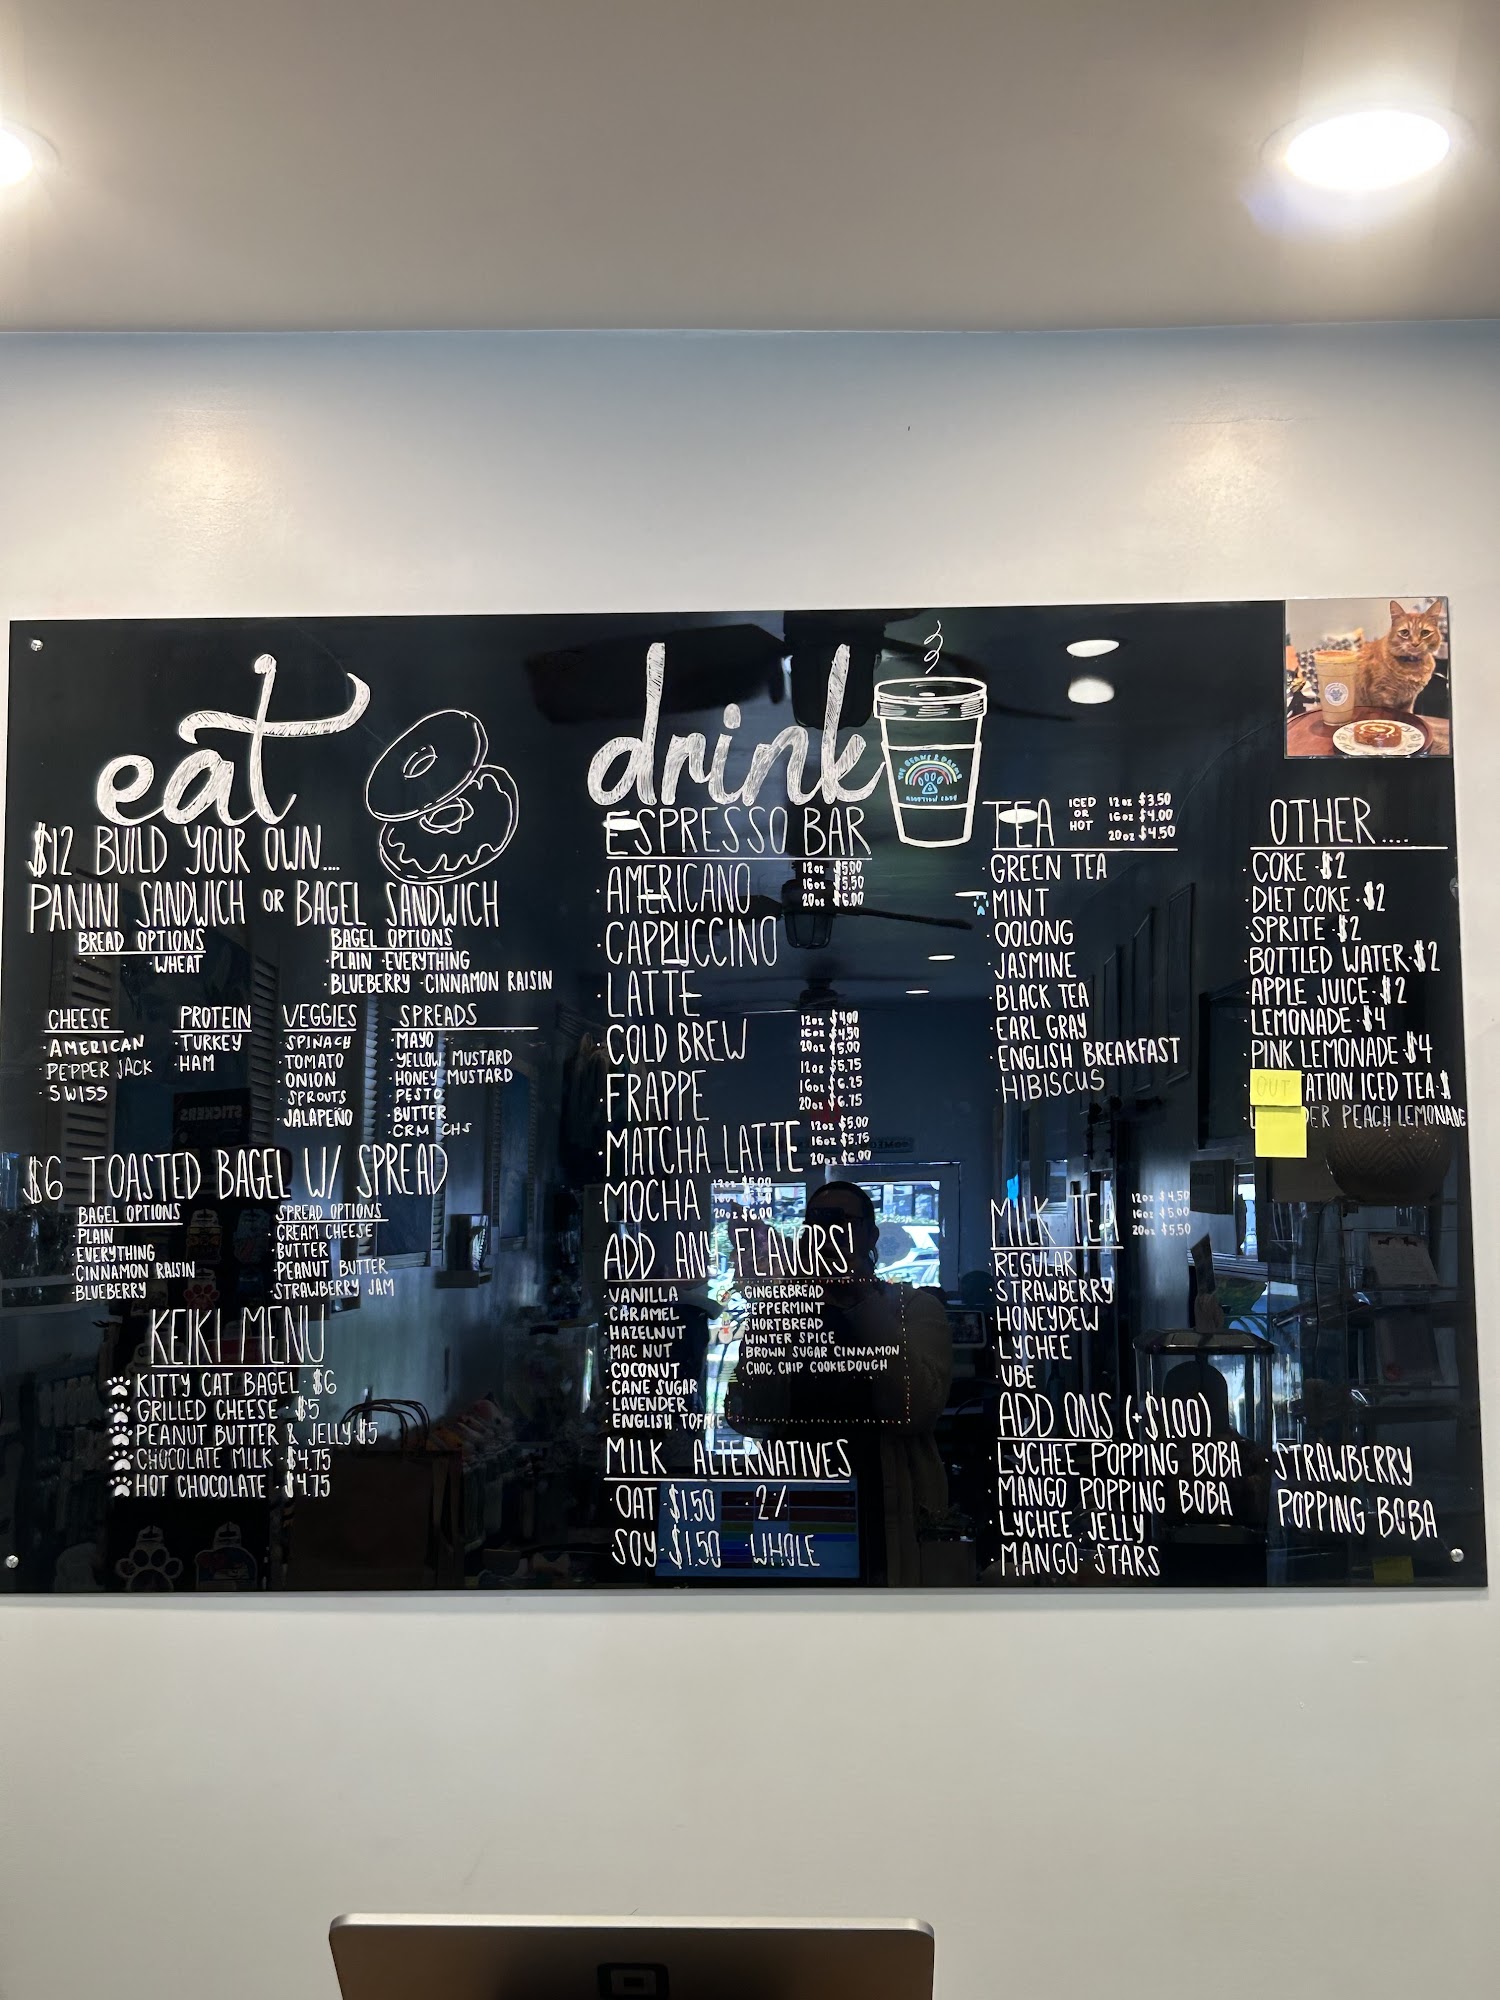 eat
$12 BUILD YOUR OWN....
PANINI SANDWICH OR BAGEL SANDWICH
BREAD OPTIONS
·WHEAT
BAGEL OPTIONS
·PLAIN ·EVERYTHING
·BLUEBERRY ·CINNAMON RAISIN
CHEESE
·AMERICAN
·PEPPER JACK
·SWISS
PROTEIN
·TURKEY
·HAM
VEGGIES
·SPINACH
·TOMATO
·ONION
·SPROUTS
·JALAPEÑO
SPREADS
·MAYO
·YELLOW MUSTARD
·HONEY MUSTARD
·PESTO
·BUTTER
·CRM CHS
$6 TOASTED BAGEL W/ SPREAD
BAGEL OPTIONS
·PLAIN
·EVERYTHING
·CINNAMON RAISIN
·BLUEBERRY
SPREAD OPTIONS
·CREAM CHEESE
·BUTTER
·PEANUT BUTTER
·STRAWBERRY JAM
KEIKI MENU
KITTY CAT BAGEL · $6
GRILLED CHEESE · $5
PEANUT BUTTER & JELLY · $5
CHOCOLATE MILK · $4.75
HOT CHOCOLATE · $4.75
drink
ESPRESSO BAR
·AMERICANO
12oz $5.00
16oz $5.50
20oz $6.00
·CAPPUCCINO
·LATTE
·COLD BREW
12oz $4.00
16oz $4.50
20oz $5.00
·FRAPPE
12oz $5.75
16oz $6.25
20oz $6.75
·MATCHA LATTE
12oz $5.00
16oz $5.75
20oz $6.00
·MOCHA
12oz $5.00
16oz $5.50
20oz $6.00
ADD ANY FLAVORS!
·VANILLA
·CARAMEL
·HAZELNUT
·MAC NUT
·COCONUT
·CANE SUGAR
·LAVENDER
·ENGLISH TOFFEE
·GINGERBREAD
·PEPPERMINT
·SHORTBREAD
·WINTER SPICE
·BROWN SUGAR CINNAMON
·CHOC. CHIP COOKIEDOUGH
MILK ALTERNATIVES
·OAT ·$1.50 ·2%
·SOY ·$1.50 ·WHOLE
TEA
ICED OR HOT
12oz $3.50
16oz $4.00
20oz $4.50
·GREEN TEA
·MINT
·OOLONG
·JASMINE
·BLACK TEA
·EARL GRAY
·ENGLISH BREAKFAST
·HIBISCUS
MILK TEA
12oz $4.50
16oz $5.00
20oz $5.50
·REGULAR
·STRAWBERRY
·HONEYDEW
·LYCHEE
·UBE
ADD ONS (+$1.00)
·LYCHEE POPPING BOBA
·MANGO POPPING BOBA
·LYCHEE JELLY
·MANGO STARS
·STRAWBERRY
POPPING BOBA
OTHER....
·COKE ·$2
·DIET COKE ·$2
·SPRITE ·$2
·BOTTLED WATER ·$2
·APPLE JUICE ·$2
·LEMONADE ·$4
·PINK LEMONADE $4
OUT
ATION ICED TEA · $
DER PEACH LEMONADE